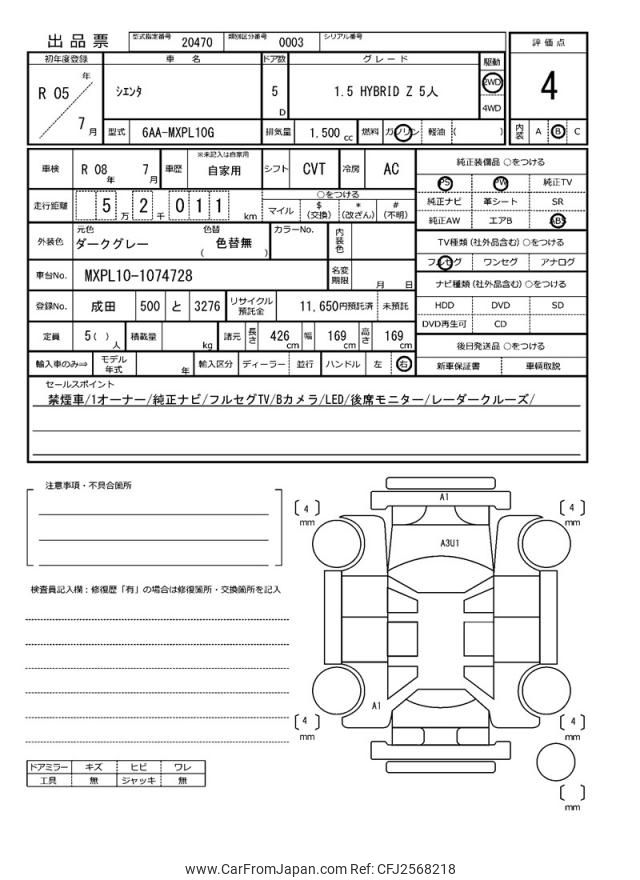 出品票 型式指定番号 20470 類別区分番号 0003 シリアル番号
評価点
4
内装 A B C
初年度登録 車名 ドア数 グレード 駆動
R 05 年 7 月 シエンタ 5 D 1.5 HYBRID Z 5人 2WD 4WD
型式 6AA-MXPL10G 排気量 1,500 cc 燃料 ガソリン 軽油 ( )
車検 R 08 年 7 月 車歴 ※未記入は自家用 自家用 シフト CVT 冷房 AC
走行距離 5 万 2 千 0 1 1 km ○をつける マイル $ (交換) * (改ざん) # (不明)
外装色 元色 ダークグレー 色替 ( 色替無 ) カラーNo. 内装色
車台No. MXPL10-1074728 名変期限 月 日
登録No. 成田 500 と 3276 リサイクル預託金 11,650円預託済 未預託
定員 5( ) 人 積載量 kg 諸元 長さ 426 cm 幅 169 cm 高さ 169 cm
輸入車のみ⇒ モデル年式 年 輸入区分 ディーラー 並行 ハンドル 左 右
純正装備品 ○をつける
PS PW 純正TV
純正ナビ 革シート SR
純正AW エアB ABS
TV種類 (社外品含む) ○をつける
フルセグ ワンセグ アナログ
ナビ種類 (社外品含む) ○をつける
HDD DVD SD
DVD再生可 CD
後日発送品 ○をつける
新車保証書 車輌取説
セールスポイント
禁煙車/1オーナー/純正ナビ/フルセグTV/Bカメラ/LED/後席モニター/レーダークルーズ/
注意事項・不具合箇所
検査員記入欄：修復歴「有」の場合は修復箇所・交換箇所を記入
ドアミラー キズ ヒビ ワレ
工具 無 ジャッキ 無
A1
[ 4 ] mm
[ 4 ] mm
A3U1
A1
[ 4 ] mm
[ 4 ] mm
[ ] mm
www.CarFromJapan.com Ref: CFJ2568218